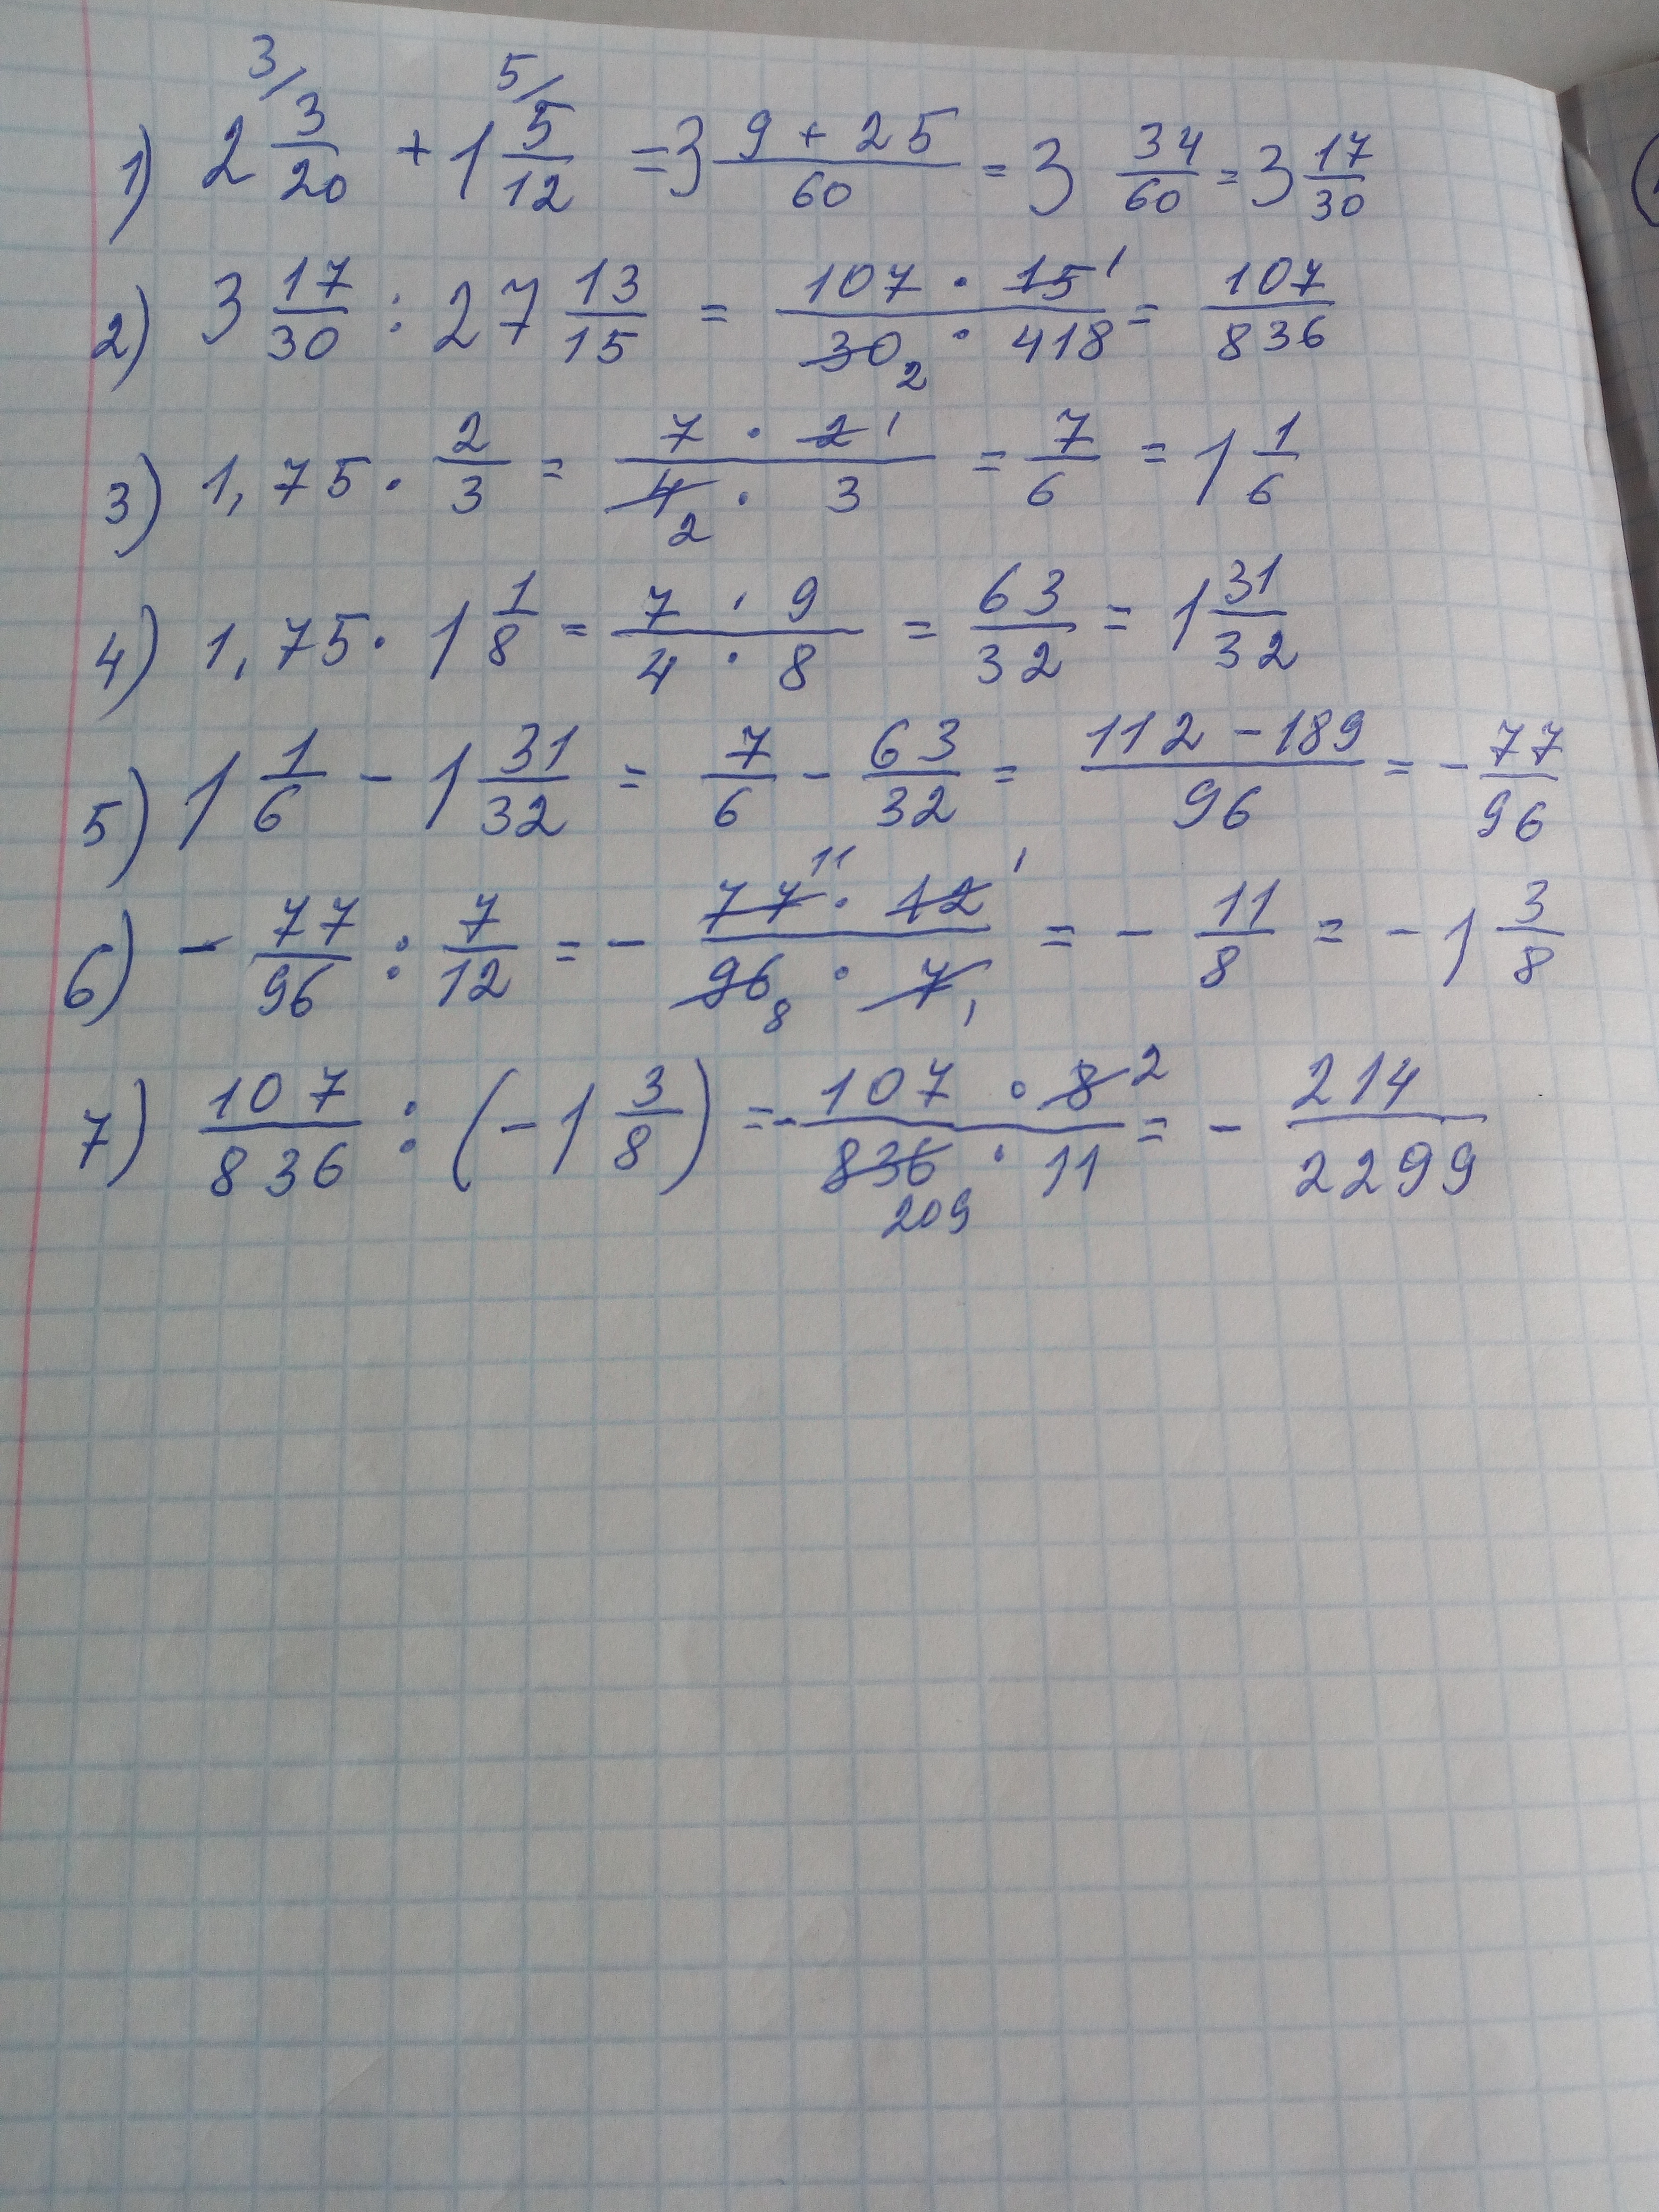 1) 2 3/20 (3/) + 1 5/12 (5/) = 3 (9 + 25)/60 = 3 34/60 = 3 17/30
2) 3 17/30 : 27 13/15 = (107 · 15 1)/(30 2 · 418) = 107/836
3) 1,75 · 2/3 = (7 · 2 1)/(4 2 · 3) = 7/6 = 1 1/6
4) 1,75 · 1 1/8 = (7 · 9)/(4 · 8) = 63/32 = 1 31/32
5) 1 1/6 - 1 31/32 = 7/6 - 63/32 = (112 - 189)/96 = - 77/96
6) - 77/96 : 7/12 = - (77 11 · 12 1)/(96 8 · 7 1) = - 11/8 = - 1 3/8
7) 107/836 : (- 1 3/8) = - (107 · 8 2)/(836 209 · 11) = - 214/2299